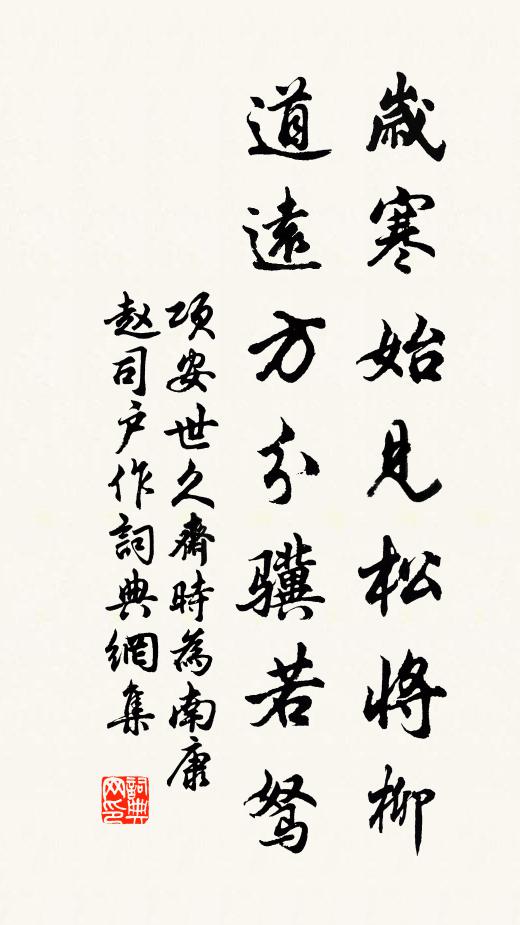 歲寒始見松將柳
道遠方分骥若駑
项安世久齋時為南康
赵司户作詞典網集
詞典网印